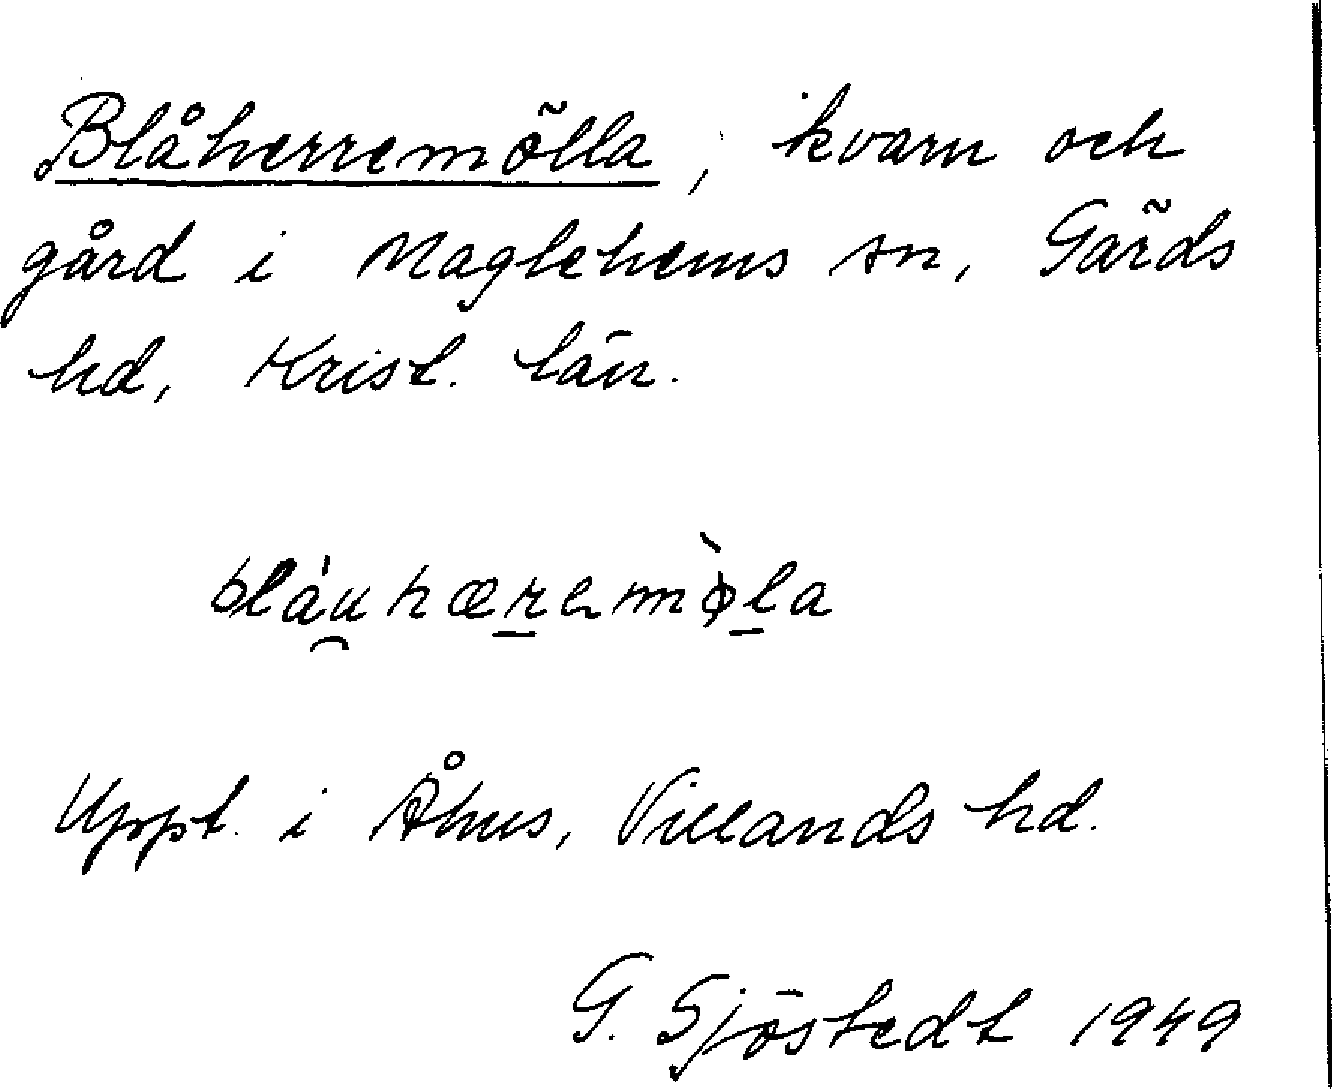 Blåherremölla, kvarn och
gård i Maglehems sn, Gärds
hd, Krist. län.
bláu̯hæṟemø̀ḻa
Uppt. i Åhus, Villands hd.
G. Sjöstedt 1949